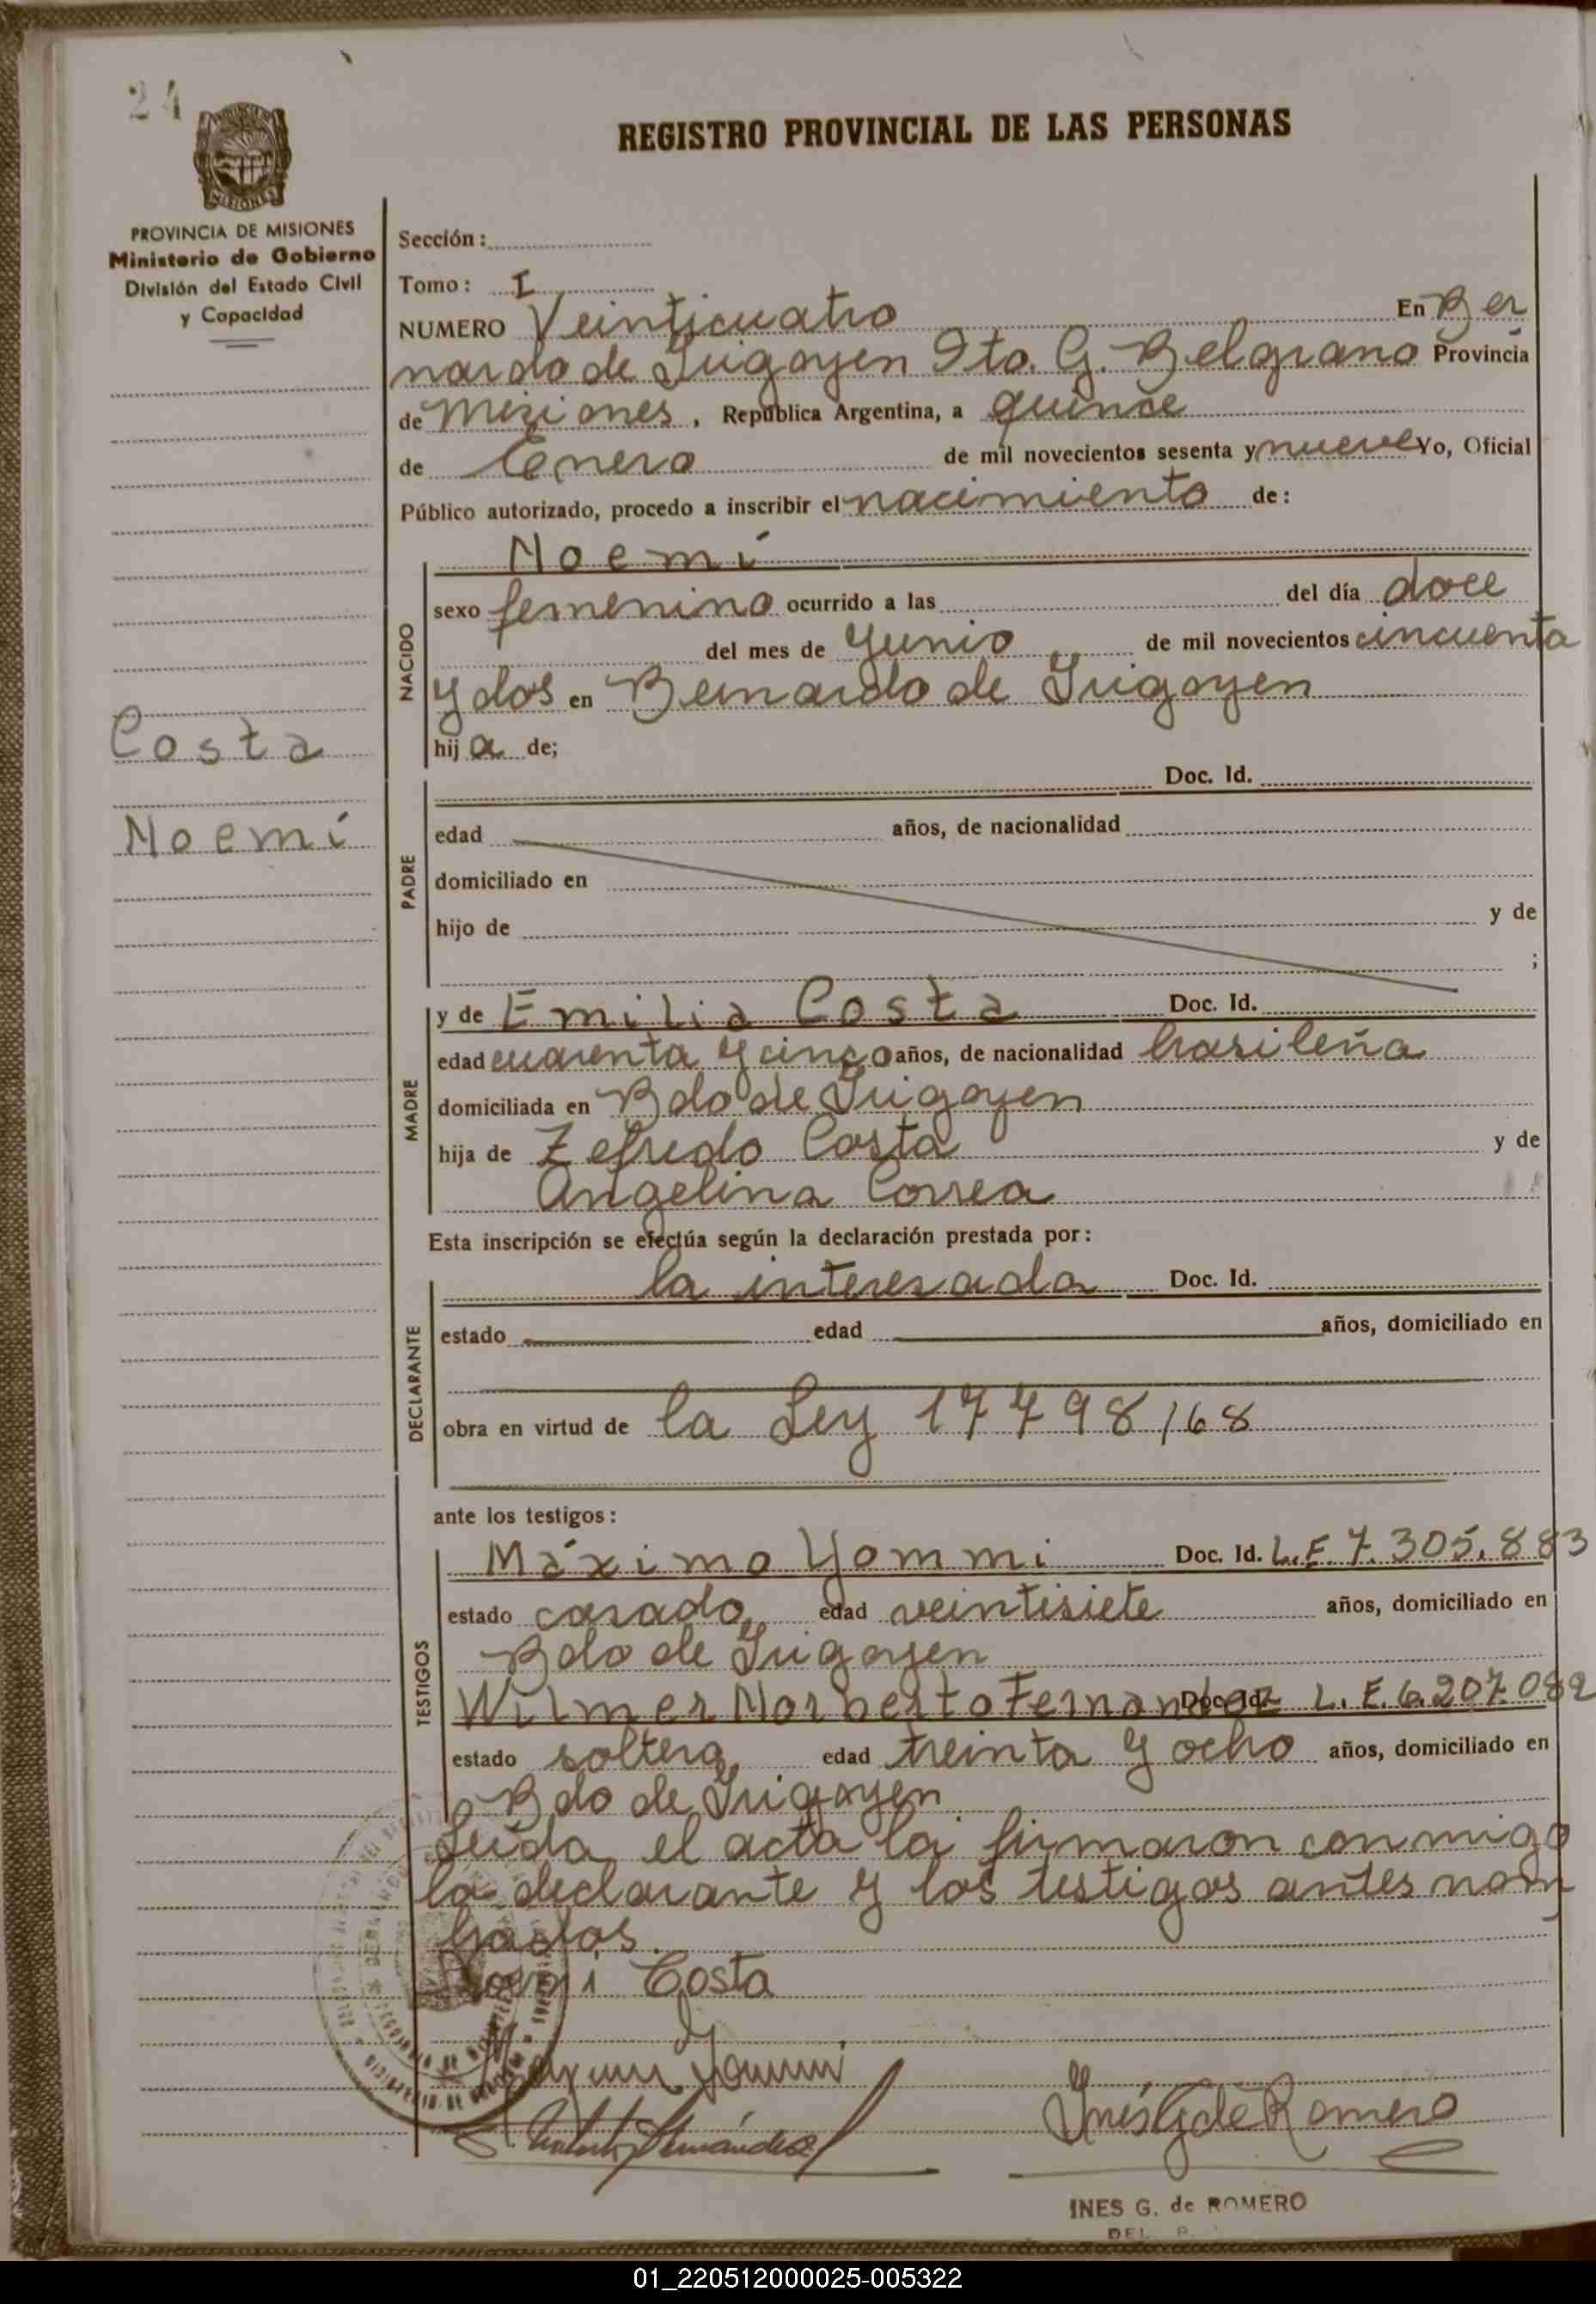 24
REGISTRO PROVINCIAL DE LAS PERSONAS
PROVINCIA DE MISIONES
Ministerio de Gobierno
División del Estado Civil
y Capacidad
Costa
Noemí
Sección:
Tomo: I
NUMERO Veinticuatro En Ber
nardo de Irigoyen Dto. G. Belgrano Provincia
de Misiones, República Argentina, a quince
de Enero de mil novecientos sesenta y nueve Yo, Oficial
Público autorizado, procedo a inscribir el nacimiento de:
NACIDO
Noemí
sexo femenino ocurrido a las del día doce
del mes de Junio de mil novecientos cincuenta
y dos en Bernardo de Irigoyen
hija de;
PADRE
Doc. Id.
edad años, de nacionalidad
domiciliado en
hijo de y de
;
MADRE
y de Emilia Costa Doc. Id.
edad cuarenta y cinco años, de nacionalidad brasileña
domiciliada en Bdo de Irigoyen
hija de Zefredo Costa y de
Angelina Correa
Esta inscripción se efectúa según la declaración prestada por:
DECLARANTE
la interesada Doc. Id.
estado edad años, domiciliado en
obra en virtud de la Ley 17798/68
ante los testigos:
TESTIGOS
Máximo Yommi Doc. Id. L.E 7.305.883
estado casado edad veintisiete años, domiciliado en
Bdo de Irigoyen
Wilmer Norberto Fernandez Doc. Id. L.E.6.207.082
estado soltero edad treinta y ocho años, domiciliado en
Bdo de Irigoyen
Leída el acta la firmaron conmigo
la declarante y los testigos antes nom
brados.
Noemi Costa
Yommi
Fernández
Inés G de Romero
INES G. de ROMERO
01_220512000025-005322